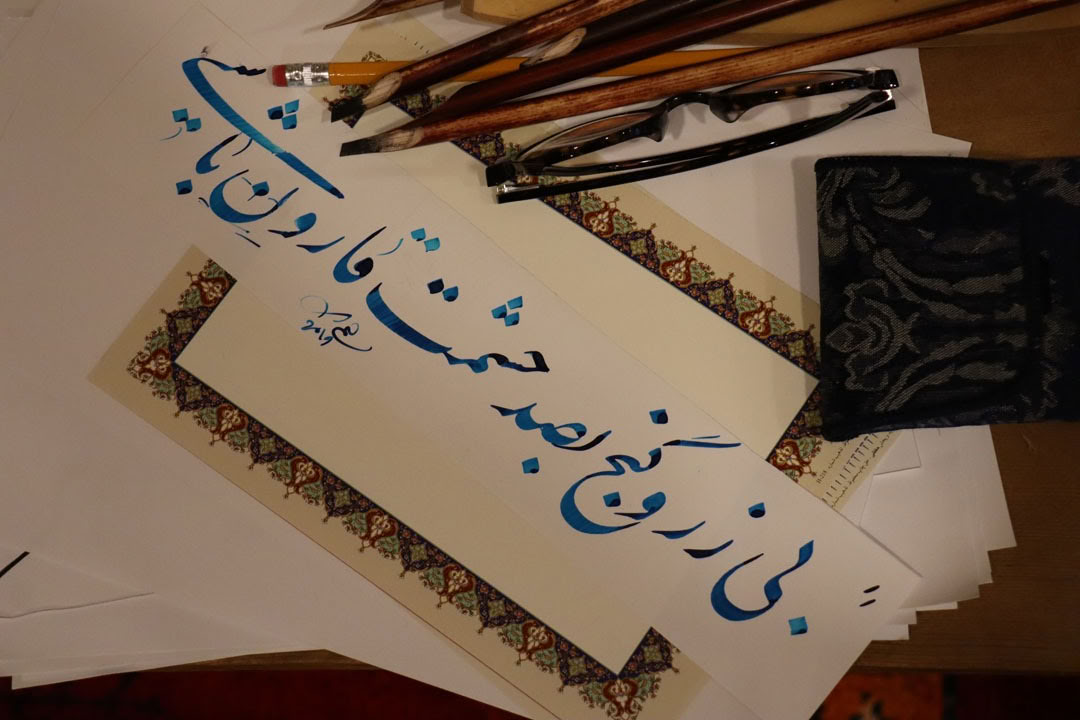 بی زر و گنج بصد حشمت قارون باشی